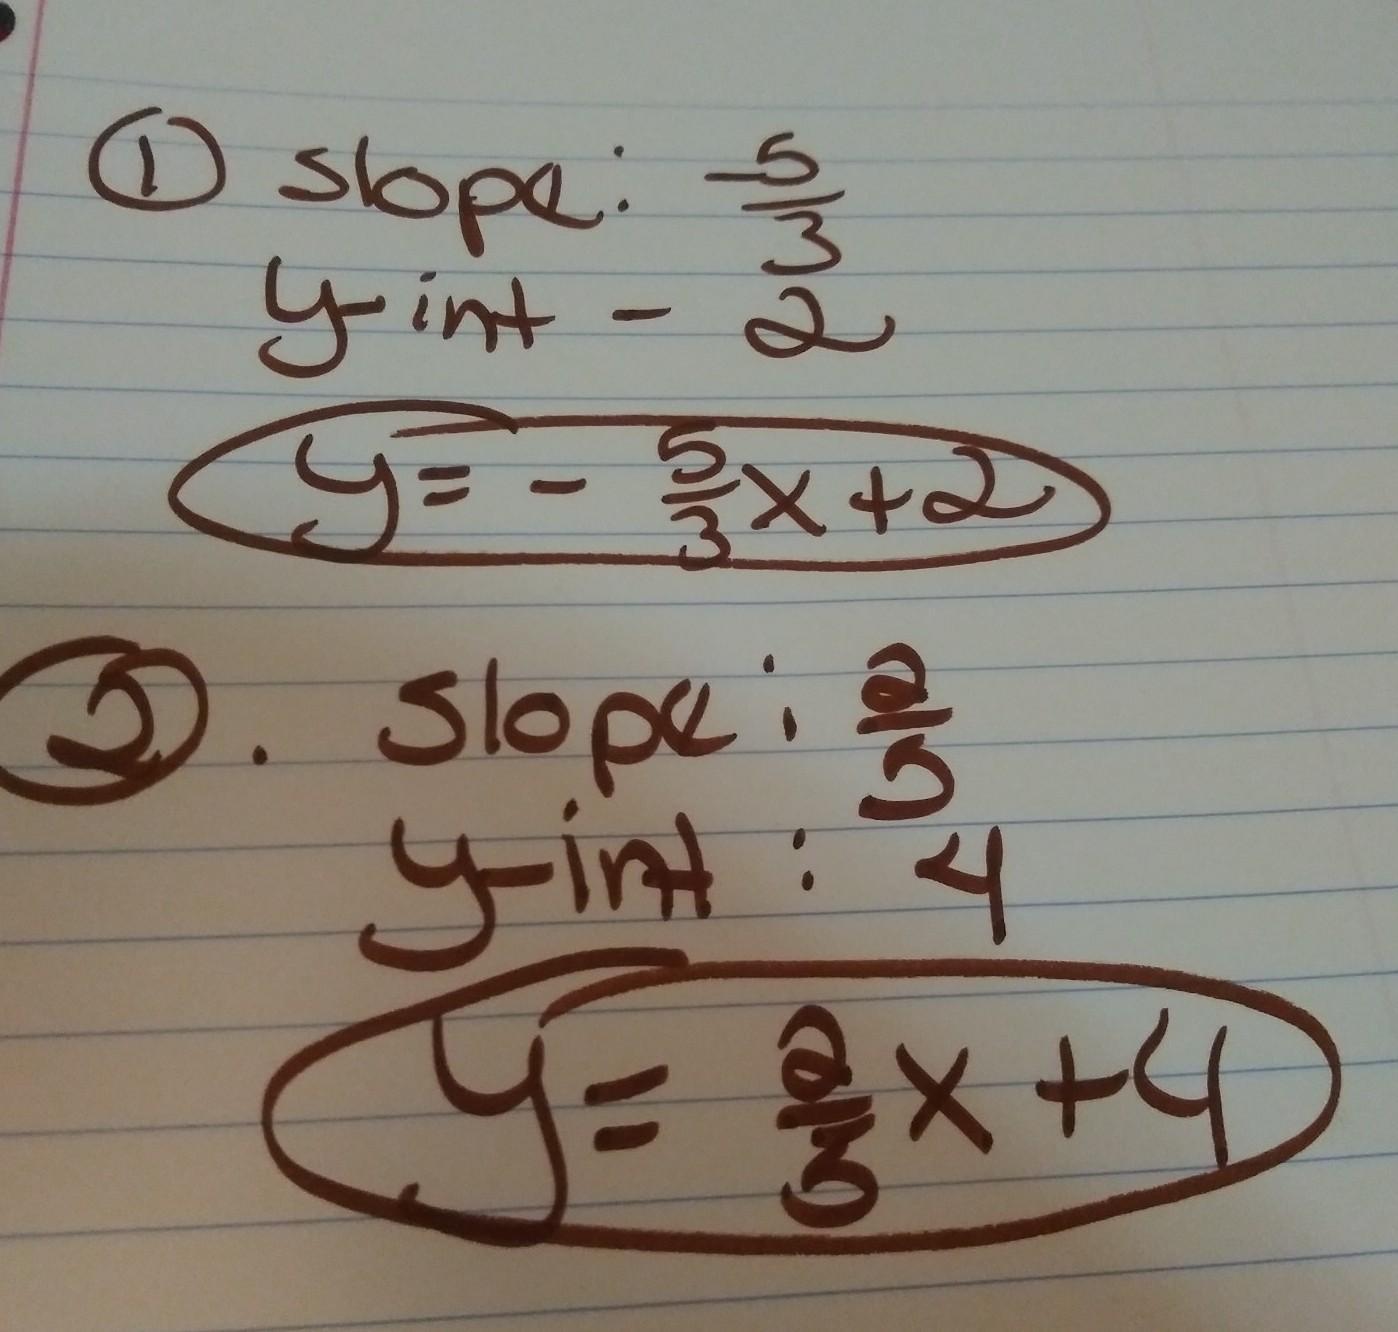 ① slope: -5/3
y-int - 2
y = - 5/3 x + 2
②. slope: 2/5
y-int : 4
y = 2/5 x + 4